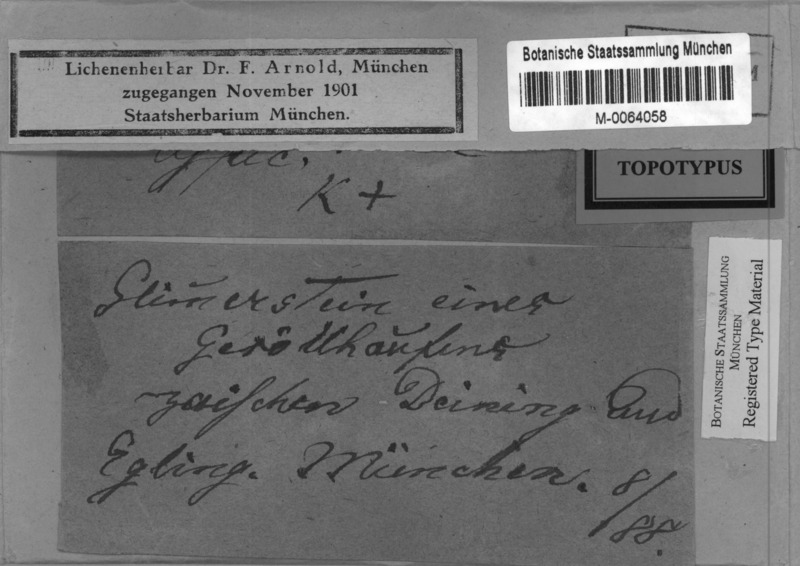 Lichenenherbar Dr. F. Arnold, München
zugegangen November 1901
Staatsherbarium München.
Botanische Staatssammlung München
M-0064058
TOPOTYPUS
K +
Glimerstein eines
Geröllhaufens
zwischen Deining und
Egling. München. 8/
88.
BOTANISCHE STAATSSAMMLUNG
MÜNCHEN
Registered Type Material